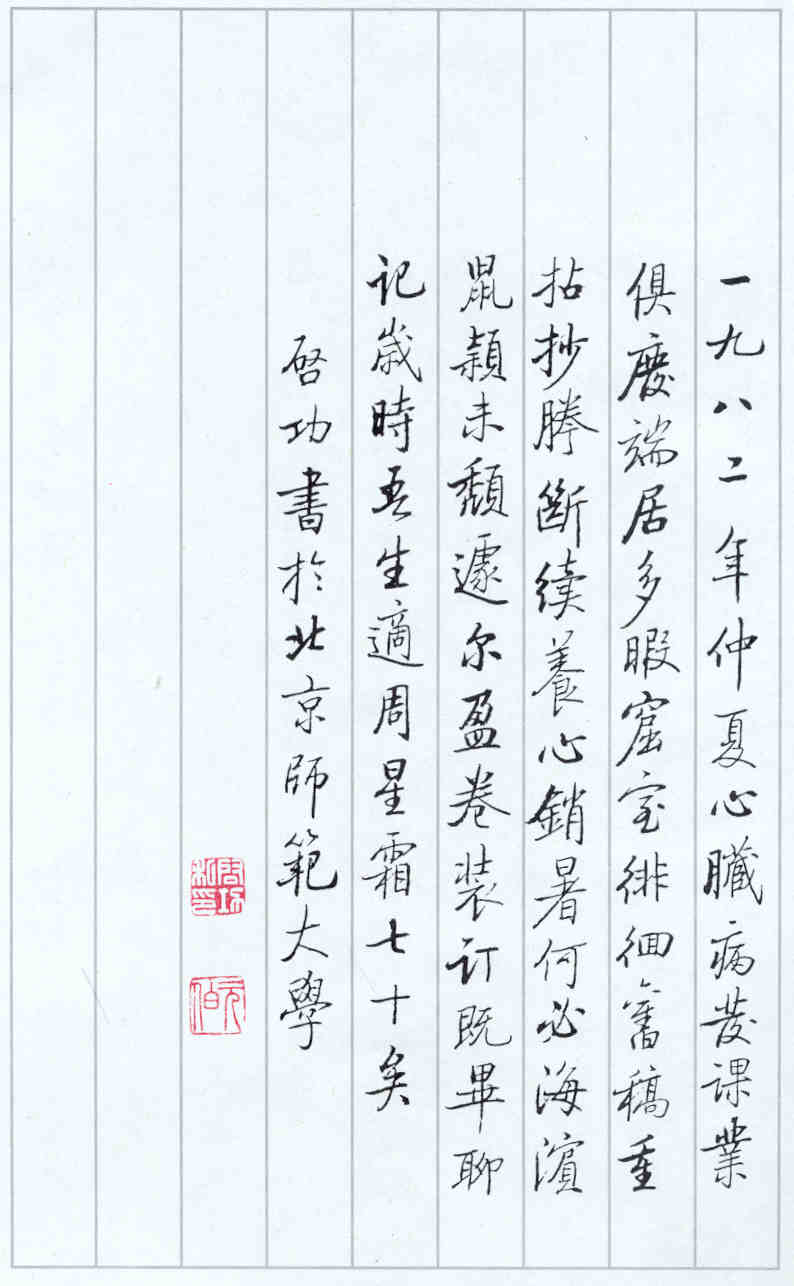 一九八二年仲夏心臟病发課業
俱廢端居多暇窟室徘徊舊稿重
拈抄謄斷續養心銷暑何必海濱
鼠穎未頹遽尔盈卷装订既畢聊
记歲時吾生適周星霜七十矣
啓功書於北京師範大學
啓功私印
元伯